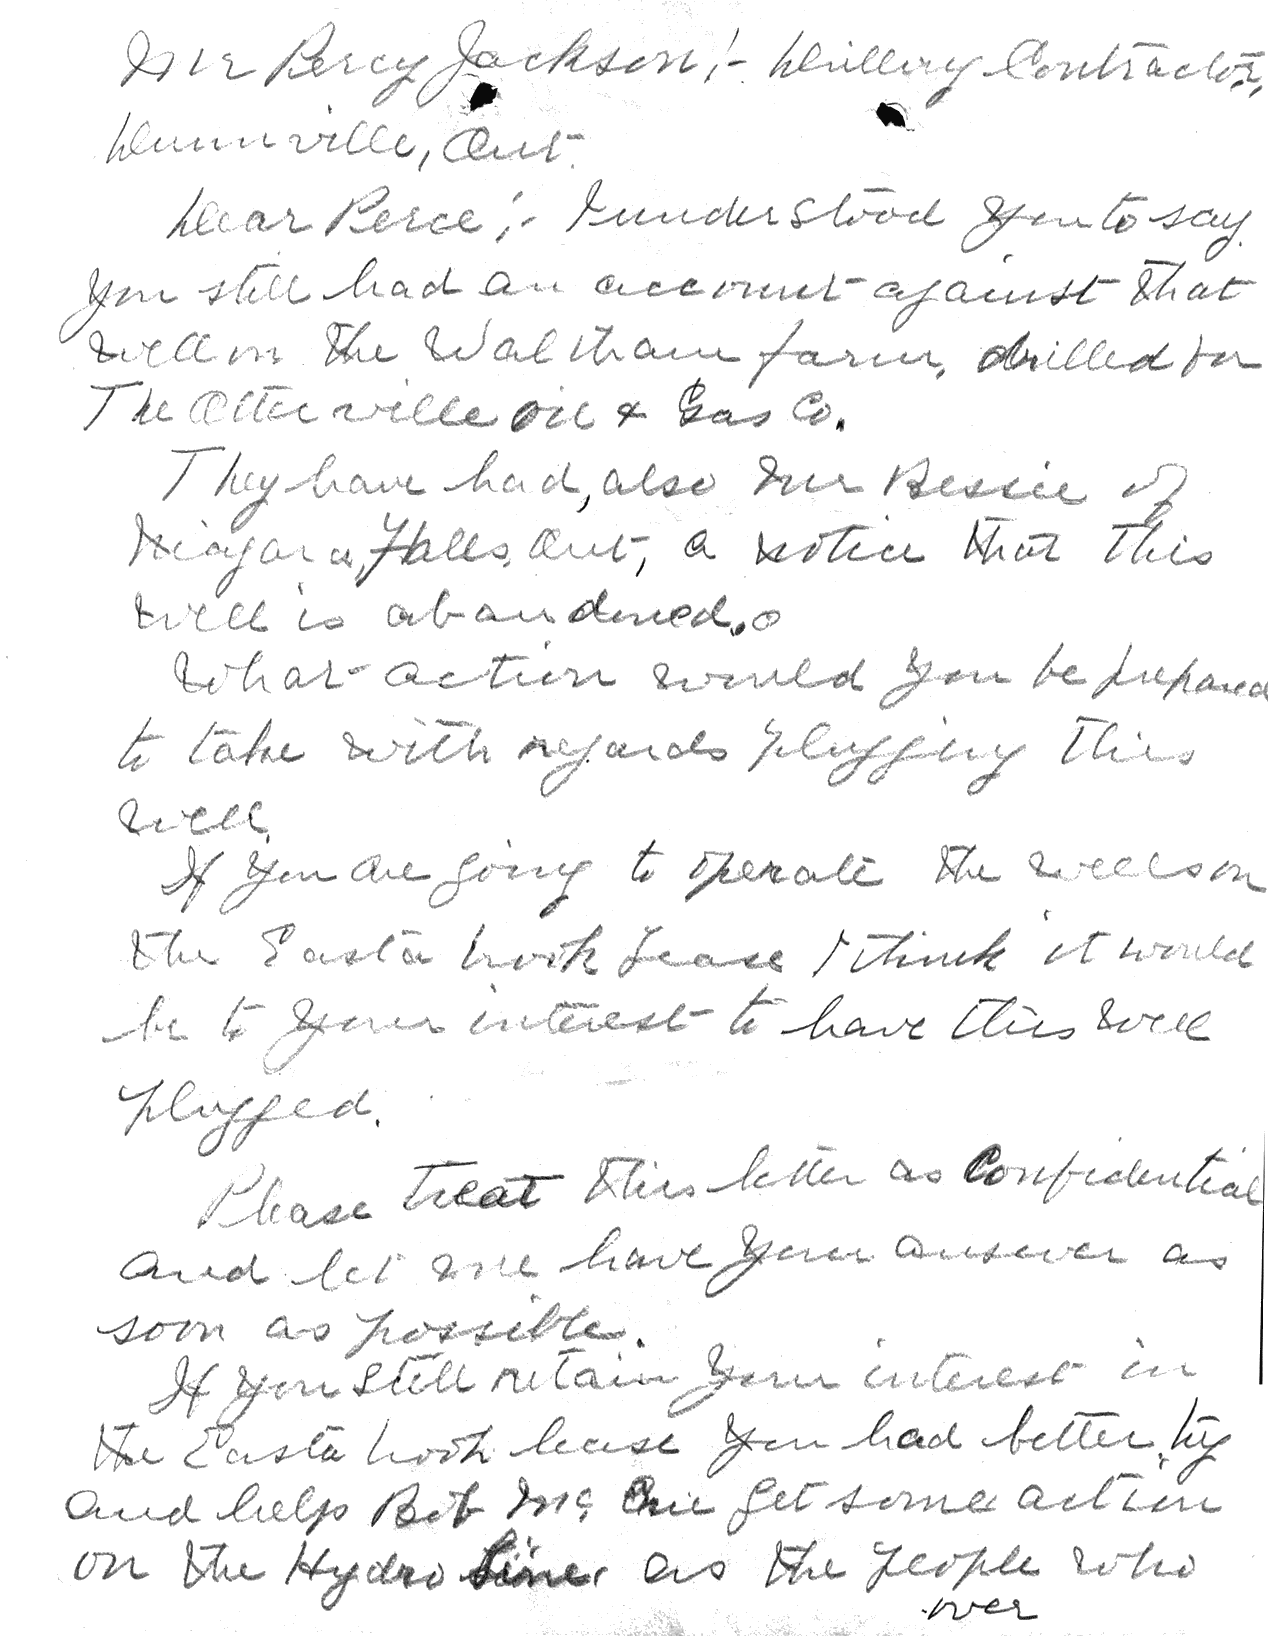 Mr Percy Jackson;- Drilling Contractor,
Dunnville, Ont.
Dear Perce;- I understood you to say
you still had an account against that
well on the Waltham farm, drilled for
The Otterville Oil & Gas Co.
They have had, also Mr Bessie of
Niagara, Falls, Ont, a notice that this
well is abandoned.
What action would you be prepared
to take with regards plugging this
well.
If you are going to operate the wells on
the Easta brook Lease I think it would
be to your interest to have this well
plugged.
Please treat this letter as Confidential
and let me have your answer as
soon as possible.
If you still retain your interest in
the Easta brook lease you had better try
and help Bob Mc get some action
on the Hydro Line, as the people who
over